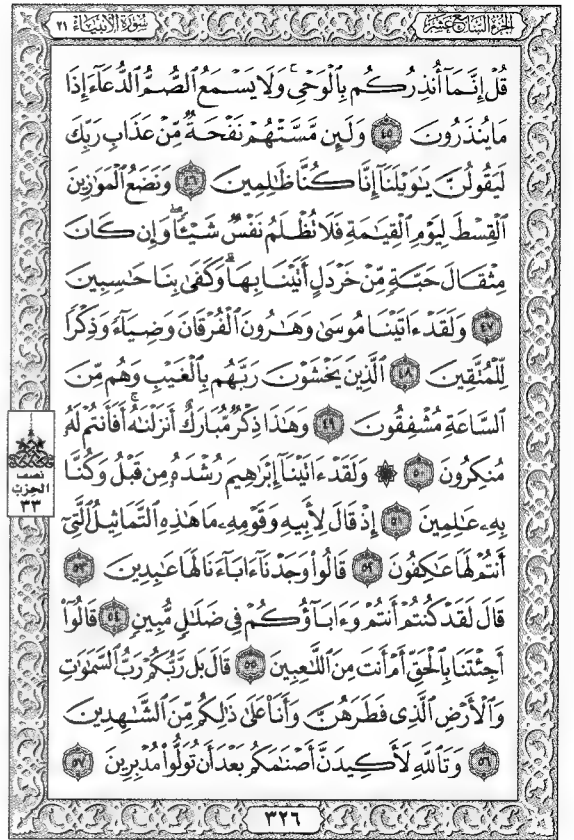 الجزء السابع عشر
سورة الأنبياء ٢١
قُلْ إِنَّمَآ أُنذِرُكُم بِٱلْوَحْىِ ۚ وَلَا يَسْمَعُ ٱلصُّمُّ ٱلدُّعَآءَ إِذَا
مَا يُنذَرُونَ ٤٥ وَلَئِن مَّسَّتْهُمْ نَفْحَةٌ مِّنْ عَذَابِ رَبِّكَ
لَيَقُولُنَّ يَٰوَيْلَنَآ إِنَّا كُنَّا ظَٰلِمِينَ ٤٦ وَنَضَعُ ٱلْمَوَٰزِينَ
ٱلْقِسْطَ لِيَوْمِ ٱلْقِيَٰمَةِ فَلَا تُظْلَمُ نَفْسٌ شَيْـًٔا ۖ وَإِن كَانَ
مِثْقَالَ حَبَّةٍ مِّنْ خَرْدَلٍ أَتَيْنَا بِهَا ۗ وَكَفَىٰ بِنَا حَٰسِبِينَ
٤٧ وَلَقَدْ ءَاتَيْنَا مُوسَىٰ وَهَٰرُونَ ٱلْفُرْقَانَ وَضِيَآءً وَذِكْرًا
لِّلْمُتَّقِينَ ٤٨ ٱلَّذِينَ يَخْشَوْنَ رَبَّهُم بِٱلْغَيْبِ وَهُم مِّنَ
ٱلسَّاعَةِ مُشْفِقُونَ ٤٩ وَهَٰذَا ذِكْرٌ مُّبَارَكٌ أَنزَلْنَٰهُ ۚ أَفَأَنتُمْ لَهُۥ
مُنكِرُونَ ٥٠ ۞ وَلَقَدْ ءَاتَيْنَآ إِبْرَٰهِيمَ رُشْدَهُۥ مِن قَبْلُ وَكُنَّا
بِهِۦ عَٰلِمِينَ ٥١ إِذْ قَالَ لِأَبِيهِ وَقَوْمِهِۦ مَا هَٰذِهِ ٱلتَّمَاثِيلُ ٱلَّتِىٓ
أَنتُمْ لَهَا عَٰكِفُونَ ٥٢ قَالُوا۟ وَجَدْنَآ ءَابَآءَنَا لَهَا عَٰبِدِينَ ٥٣
قَالَ لَقَدْ كُنتُمْ أَنتُمْ وَءَابَآؤُكُمْ فِى ضَلَٰلٍ مُّبِينٍ ٥٤ قَالُوٓا۟
أَجِئْتَنَا بِٱلْحَقِّ أَمْ أَنتَ مِنَ ٱللَّٰعِبِينَ ٥٥ قَالَ بَل رَّبُّكُمْ رَبُّ ٱلسَّمَٰوَٰتِ
وَٱلْأَرْضِ ٱلَّذِى فَطَرَهُنَّ وَأَنَا۠ عَلَىٰ ذَٰلِكُم مِّنَ ٱلشَّٰهِدِينَ
٥٦ وَتَٱللَّهِ لَأَكِيدَنَّ أَصْنَٰمَكُم بَعْدَ أَن تُوَلُّوا۟ مُدْبِرِينَ ٥٧
نصف
الحزب
٣٣
٣٢٦